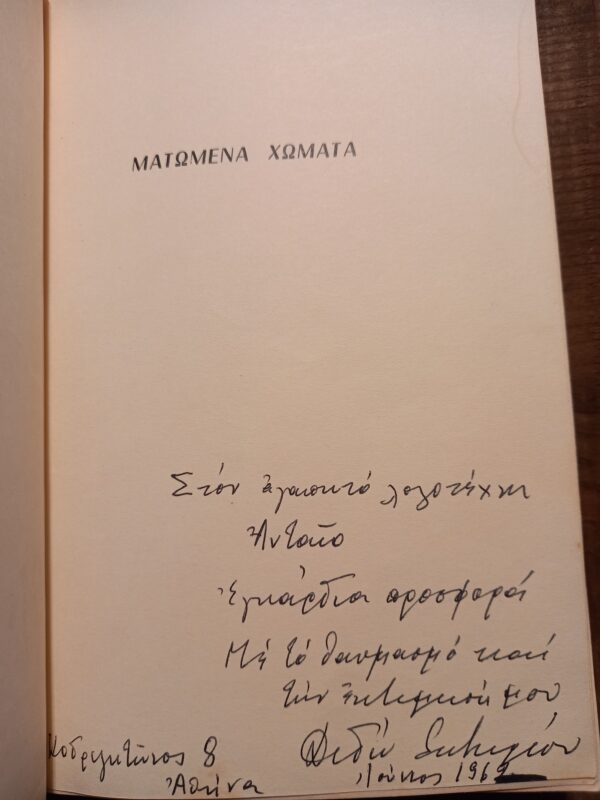 ΜΑΤΩΜΕΝΑ ΧΩΜΑΤΑ
Στόν ἀγαπητό λογοτέχνη
Ἀνταῖο
Ἐγκάρδια προσφορά
Μέ τό θαυμασμό καί
τήν ἐκτίμησή μου
Διδώ Σωτηρίου
Κοδριγκτῶνος 8
Ἀθήνα
Ἰούνιος